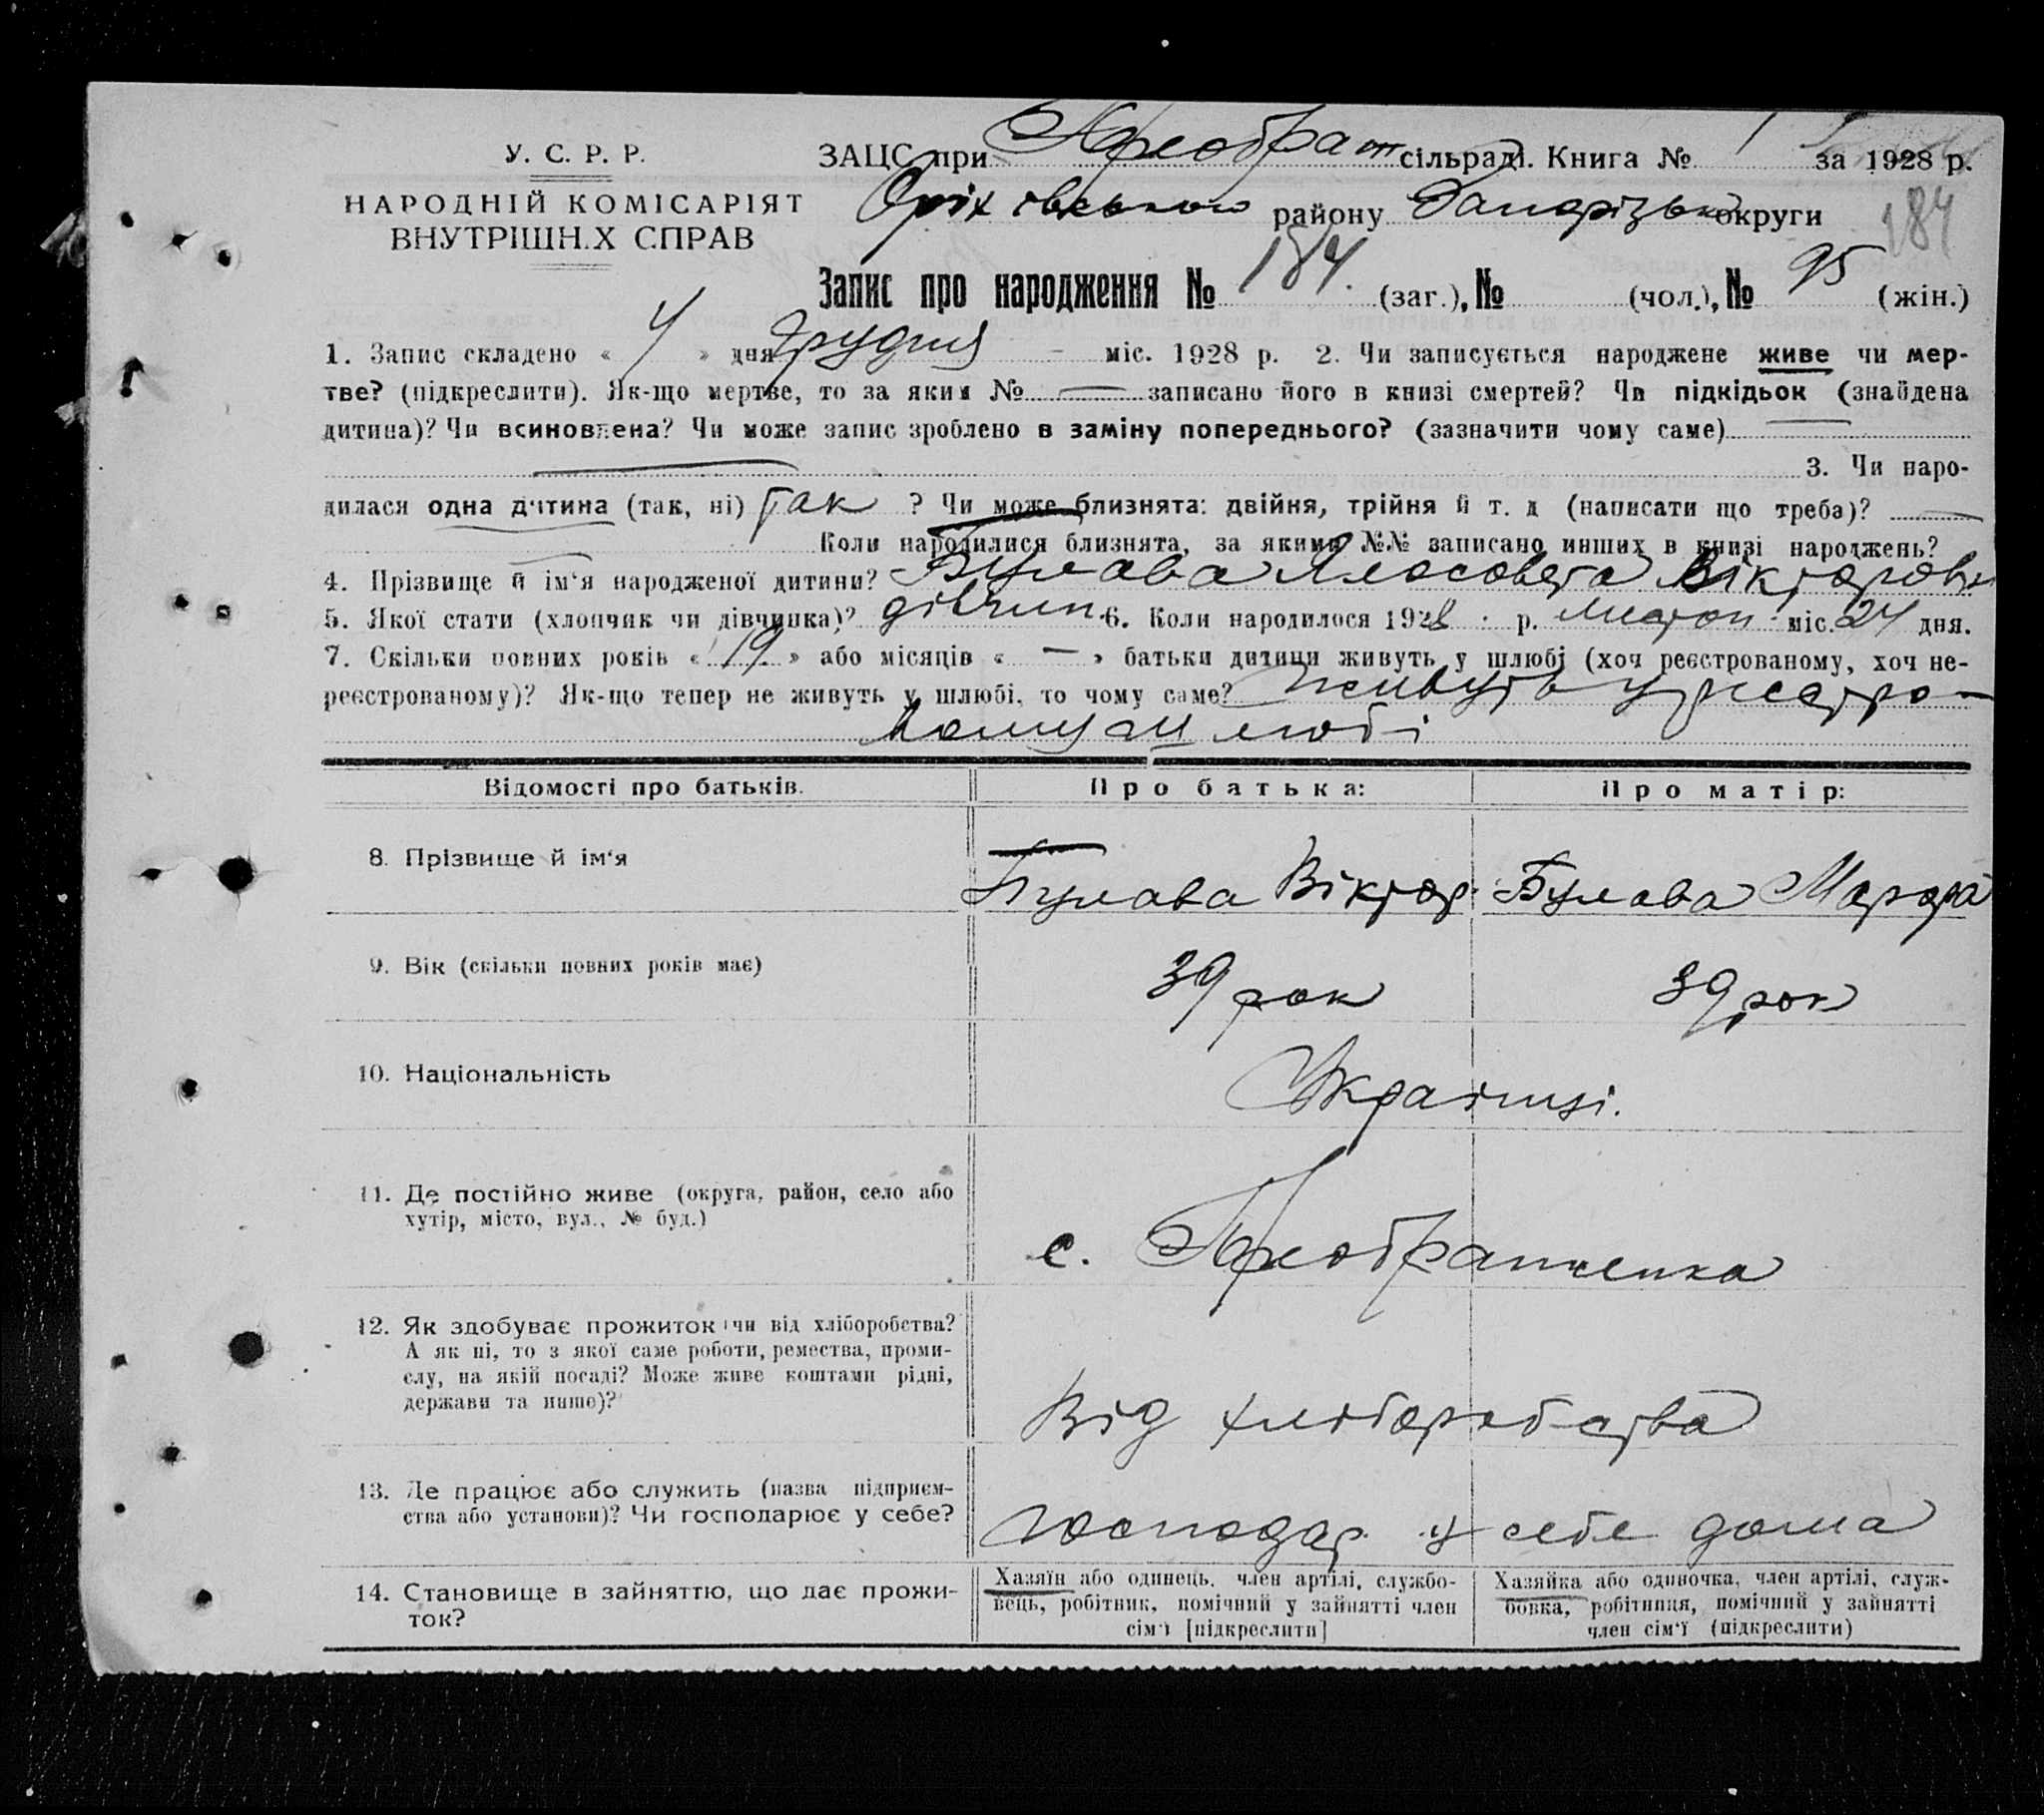 У. С. Р. Р.
НАРОДНІЙ КОМІСАРІЯТ
ВНУТРІШНІХ СПРАВ
ЗАЦС при Преображ сільраді. Книга № 1 за 1928 р.
Оріхівського району Запорізьк округи
184
Запис про народження № 184. (заг.), № (чол.), № 95 (жін.)
1. Запис складено « 4 » дня грудня міс. 1928 р. 2. Чи записується народжене живе чи мер-
тве? (підкреслити). Як-що мертве, то за яким № — записано його в книзі смертей? Чи підкідьок (знайдена
дитина)? Чи всиновлена? Чи може запис зроблено в заміну попереднього? (зазначити чому саме) —
— 3. Чи наро-
дилася одна дитина (так, ні) так ? Чи може близнята: двійня, трійня й т. д (написати що треба)? —
Коли народилися близнята, за якими №№ записано инших в книзі народжень?
4. Прізвище й ім'я народженої дитини? Булава Єлісовета Вікторовн
5. Якої стати (хлопчик чи дівчинка)? дівчин. 6. Коли народилося 1928 р. Листоп міс. 24 дня.
7. Скільки повних років « 19 » або місяців « — » батьки дитини живуть у шлюбі (хоч реєстрованому, хоч не-
реєстрованому)? Як-що тепер не живуть у шлюбі, то чому саме? живуть у реєстро-
ваному шлюбі
Відомості про батьків. Про батька: Про матір:
8. Прізвище й ім'я Булава Віктор. Булава Марфа
9. Вік (скільки повних років має) 39 рок 39 рок
10. Національність Українці.
11. Де постійно живе (округа, район, село або
хутір, місто, вул., № буд.)
с. Преображенка
12. Як здобуває прожиток чи від хліборобства?
А як ні, то з якої саме роботи, ремества, проми-
слу, на якій посаді? Може живе коштами рідні,
держави та инше)?
Від хліборобства
13. Де працює або служить (назва підприєм-
ства або установи)? Чи господарює у себе?
господар у себе дома
14. Становище в зайняттю, що дає прожи-
ток?
Хазяїн або одинець, член артілі, службо-
вець, робітник, помічний у зайнятті член
сім'ї [підкреслити]
Хазяйка або одиночка, член артілі, служ-
бовка, робітниця, помічний у зайнятті
член сім'ї (підкреслити)